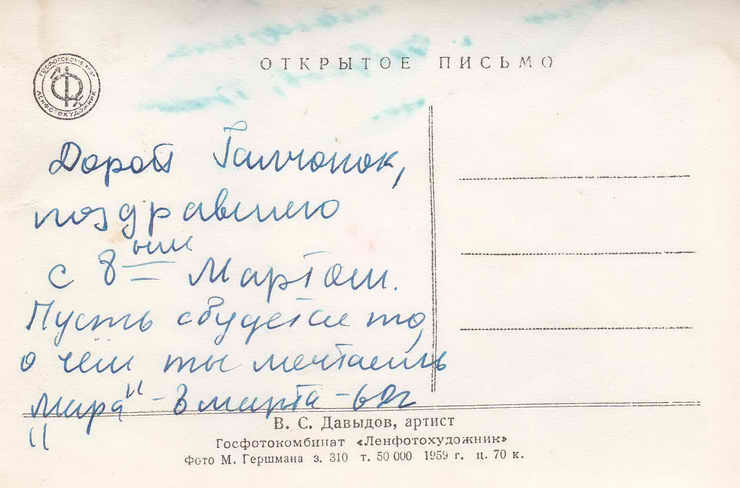 ОТКРЫТОЕ ПИСЬМО
ЛЕНФОТОХУДОЖНИК
Дорогой Галчонок,
поздравляю
с 8ым Мартом.
Пусть сбудется то,
о чём ты мечтаешь
"Мара" - 8 марта - 60г
В. С. Давыдов, артист
Госфотокомбинат «Ленфотохудожник»
Фото М. Гершмана з. 310 т. 50 000 1959 г. ц. 70 к.